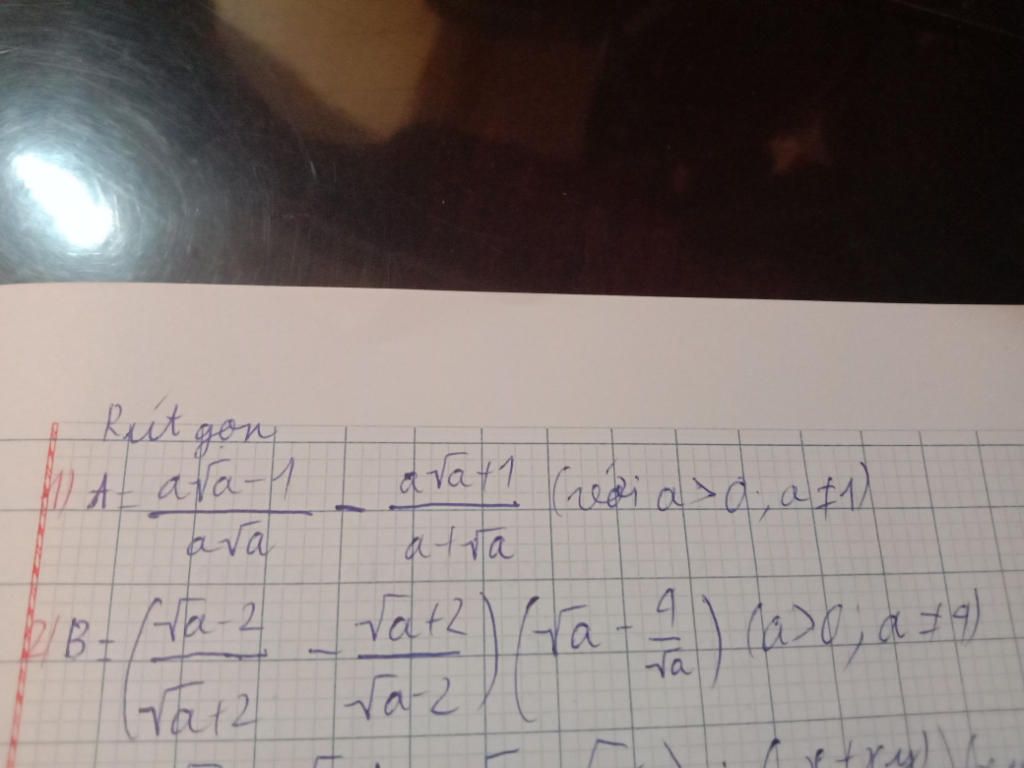 Rút gọn
1) A = \frac{a\sqrt{a}-1}{a\sqrt{a}} - \frac{a\sqrt{a}+1}{a+\sqrt{a}} (với a>0; a≠1)
2) B = \left(\frac{\sqrt{a}-2}{\sqrt{a}+2} - \frac{\sqrt{a}+2}{\sqrt{a}-2}\right)\left(\sqrt{a} - \frac{4}{\sqrt{a}}\right) (a>0; a≠4)
(x+xy)